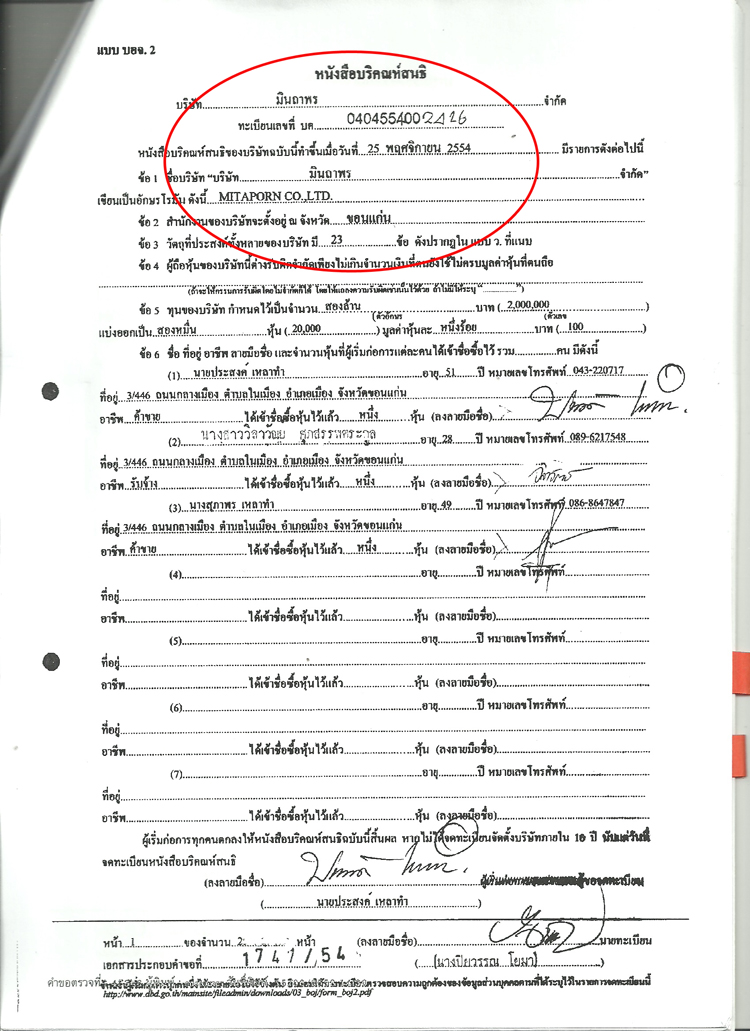 แบบ บอจ. 2
หนังสือบริคณห์สนธิ
บริษัท มินถาพร จำกัด
ทะเบียนเลขที่ บค. 0404554002426
หนังสือบริคณห์สนธิของบริษัทฉบับนี้ทำขึ้นเมื่อวันที่ 25 พฤศจิกายน 2554 มีรายการดังต่อไปนี้
ข้อ 1 ชื่อบริษัท "บริษัท มินถาพร จำกัด"
เขียนเป็นอักษรโรมัน ดังนี้ MITAPORN CO.,LTD.
ข้อ 2 สำนักงานของบริษัทจะตั้งอยู่ ณ จังหวัด ขอนแก่น
ข้อ 3 วัตถุที่ประสงค์ทั้งหลายของบริษัท มี 23 ข้อ ดังปรากฏใน แบบ ว. ที่แนบ
ข้อ 4 ผู้ถือหุ้นของบริษัทนี้ต่างรับผิดจำกัดเพียงไม่เกินจำนวนเงินที่ตนยังใช้ไม่ครบมูลค่าหุ้นที่ตนถือ
(ถ้าจะให้กรรมการรับผิดโดยไม่จำกัดก็ได้ โดยให้แถลงความรับผิดเช่นนั้นไว้ด้วย ถ้าไม่มีให้ระบุ "-")
ข้อ 5 ทุนของบริษัท กำหนดไว้เป็นจำนวน สองล้าน บาท ( 2,000,000 )
(ตัวอักษร) (ตัวเลข)
แบ่งออกเป็น สองหมื่น หุ้น ( 20,000 ) มูลค่าหุ้นละ หนึ่งร้อย บาท ( 100 )
ข้อ 6 ชื่อ ที่อยู่ อาชีพ ลายมือชื่อ และจำนวนหุ้นที่ผู้เริ่มก่อการแต่ละคนได้เข้าชื่อซื้อไว้ รวม คน มีดังนี้
(1) นายประสงค์ เหลาทำ อายุ 51 ปี หมายเลขโทรศัพท์ 043-220717
ที่อยู่ 3/446 ถนนกลางเมือง ตำบลในเมือง อำเภอเมือง จังหวัดขอนแก่น
อาชีพ ค้าขาย ได้เข้าชื่อซื้อหุ้นไว้แล้ว หนึ่ง หุ้น (ลงลายมือชื่อ)
(2) นางสาววิลาวัณย์ อายุ 28 ปี หมายเลขโทรศัพท์ 089-6217548
ที่อยู่ 3/446 ถนนกลางเมือง ตำบลในเมือง อำเภอเมือง จังหวัดขอนแก่น
อาชีพ รับจ้าง ได้เข้าชื่อซื้อหุ้นไว้แล้ว หนึ่ง หุ้น (ลงลายมือชื่อ)
(3) นางสุภาพร เหลาทำ อายุ 49 ปี หมายเลขโทรศัพท์ 086-8647847
ที่อยู่ 3/446 ถนนกลางเมือง ตำบลในเมือง อำเภอเมือง จังหวัดขอนแก่น
อาชีพ ค้าขาย ได้เข้าชื่อซื้อหุ้นไว้แล้ว หนึ่ง หุ้น (ลงลายมือชื่อ)
(4) อายุ ปี หมายเลขโทรศัพท์
ที่อยู่
อาชีพ ได้เข้าชื่อซื้อหุ้นไว้แล้ว หุ้น (ลงลายมือชื่อ)
(5) อายุ ปี หมายเลขโทรศัพท์
ที่อยู่
อาชีพ ได้เข้าชื่อซื้อหุ้นไว้แล้ว หุ้น (ลงลายมือชื่อ)
(6) อายุ ปี หมายเลขโทรศัพท์
ที่อยู่
อาชีพ ได้เข้าชื่อซื้อหุ้นไว้แล้ว หุ้น (ลงลายมือชื่อ)
(7) อายุ ปี หมายเลขโทรศัพท์
ที่อยู่
อาชีพ ได้เข้าชื่อซื้อหุ้นไว้แล้ว หุ้น (ลงลายมือชื่อ)
ผู้เริ่มก่อการทุกคนตกลงให้หนังสือบริคณห์สนธิฉบับนี้สิ้นผล หากไม่ได้จดทะเบียนจัดตั้งบริษัทภายใน 10 ปี นับแต่วันที่
จดทะเบียนหนังสือบริคณห์สนธิ
(ลงลายมือชื่อ) ผู้ขอจดทะเบียน
( นายประสงค์ เหลาทำ )
หน้า 1 ของจำนวน 2 หน้า (ลงลายมือชื่อ) นายทะเบียน
เอกสารประกอบคำขอที่ 1741/54 (นางปิยวรรณ โยมา)
http://www.dbd.go.th/mainsite/fileadmin/downloads/03_boj/form_boj2.pdf